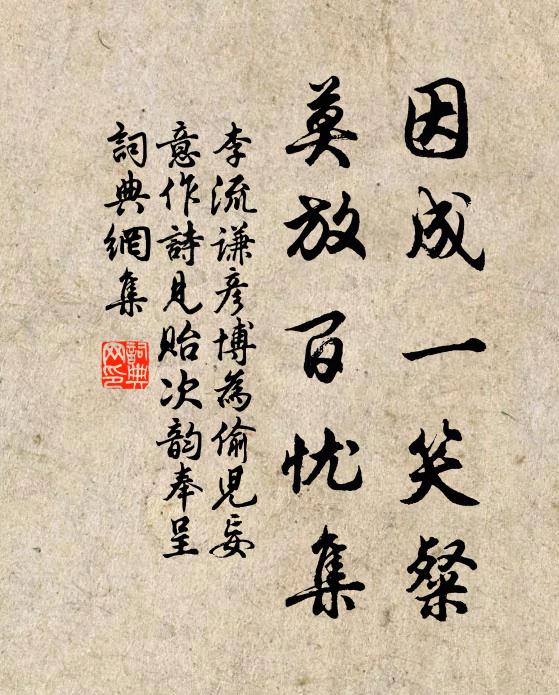 因成一笑粲
莫放百忧集
李流谦彦博為偷児妄
意作詩见贻次韵奉呈
詞典網集
詞典
网印